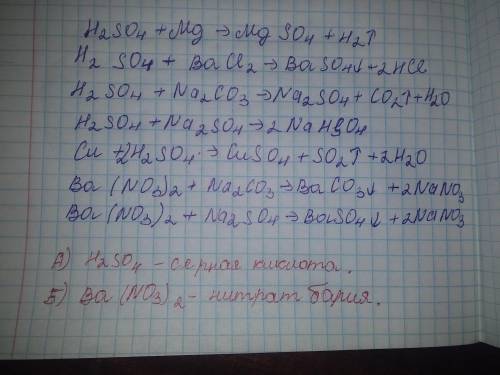 H2SO4 + Mg → MgSO4 + H2↑
H2SO4 + BaCl2 → BaSO4↓ + 2HCl
H2SO4 + Na2CO3 → Na2SO4 + CO2↑ + H2O
H2SO4 + Na2SO4 → 2NaHSO4
Cu + 2H2SO4 → CuSO4 + SO2↑ + 2H2O
Ba(NO3)2 + Na2CO3 → BaCO3↓ + 2NaNO3
Ba(NO3)2 + Na2SO4 → BaSO4↓ + 2NaNO3
А) H2SO4 – серная кислота.
Б) Ba(NO3)2 – нитрат бария.